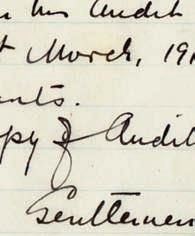 his Audit
March, 19
nts.
py of Audit
Gentlemen